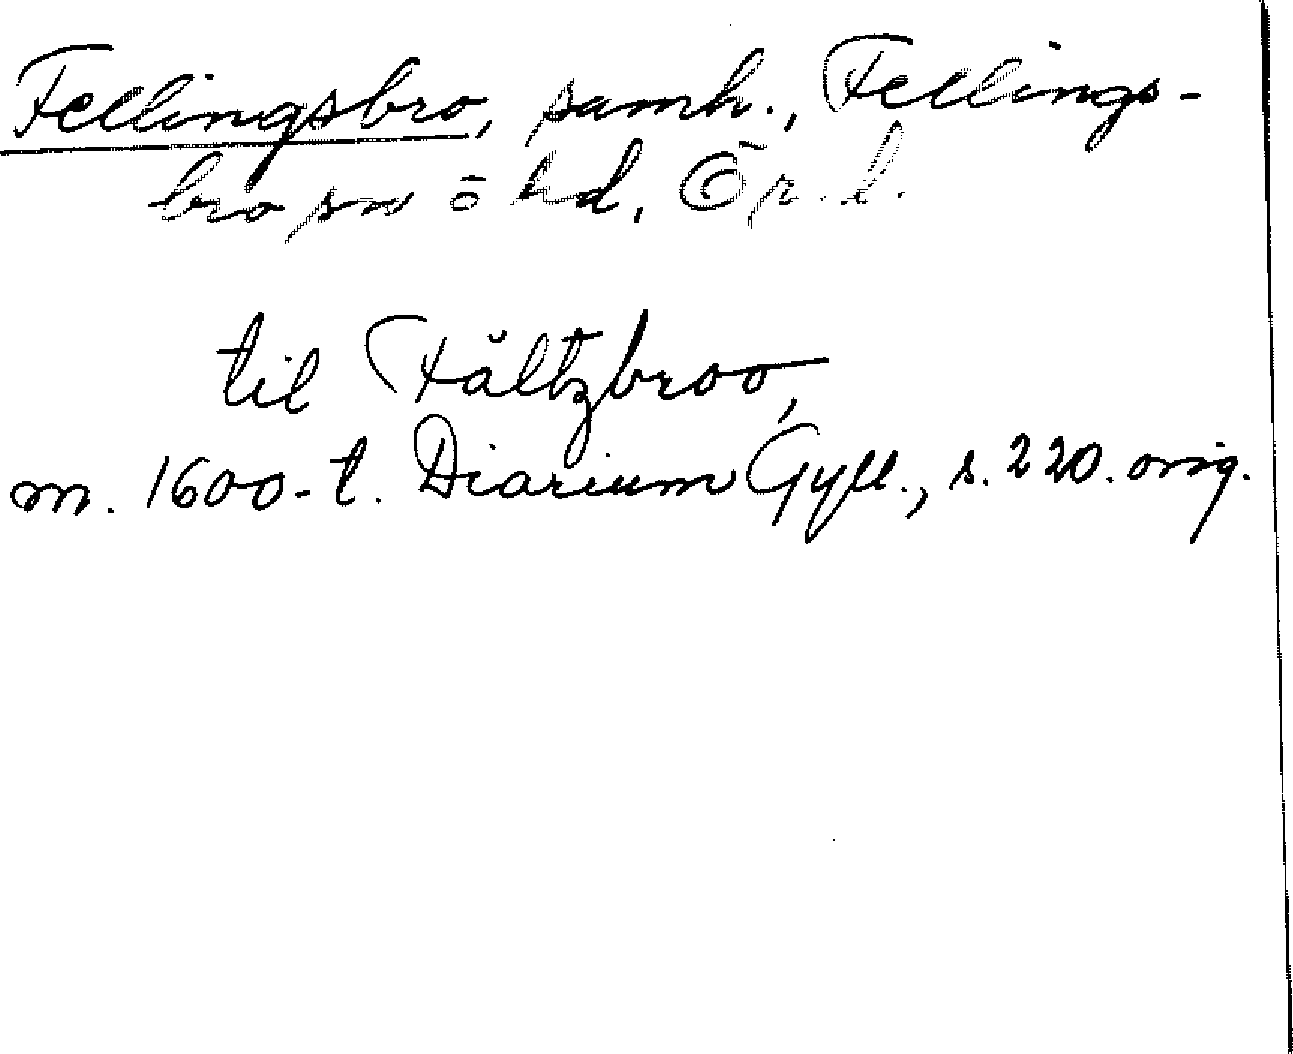 Fellingsbro, samh., Fellings-
bro sn o hd, Ör. l.
til Fältzbroo,
m. 1600-t. Diarium Gyll., s. 220. orig.